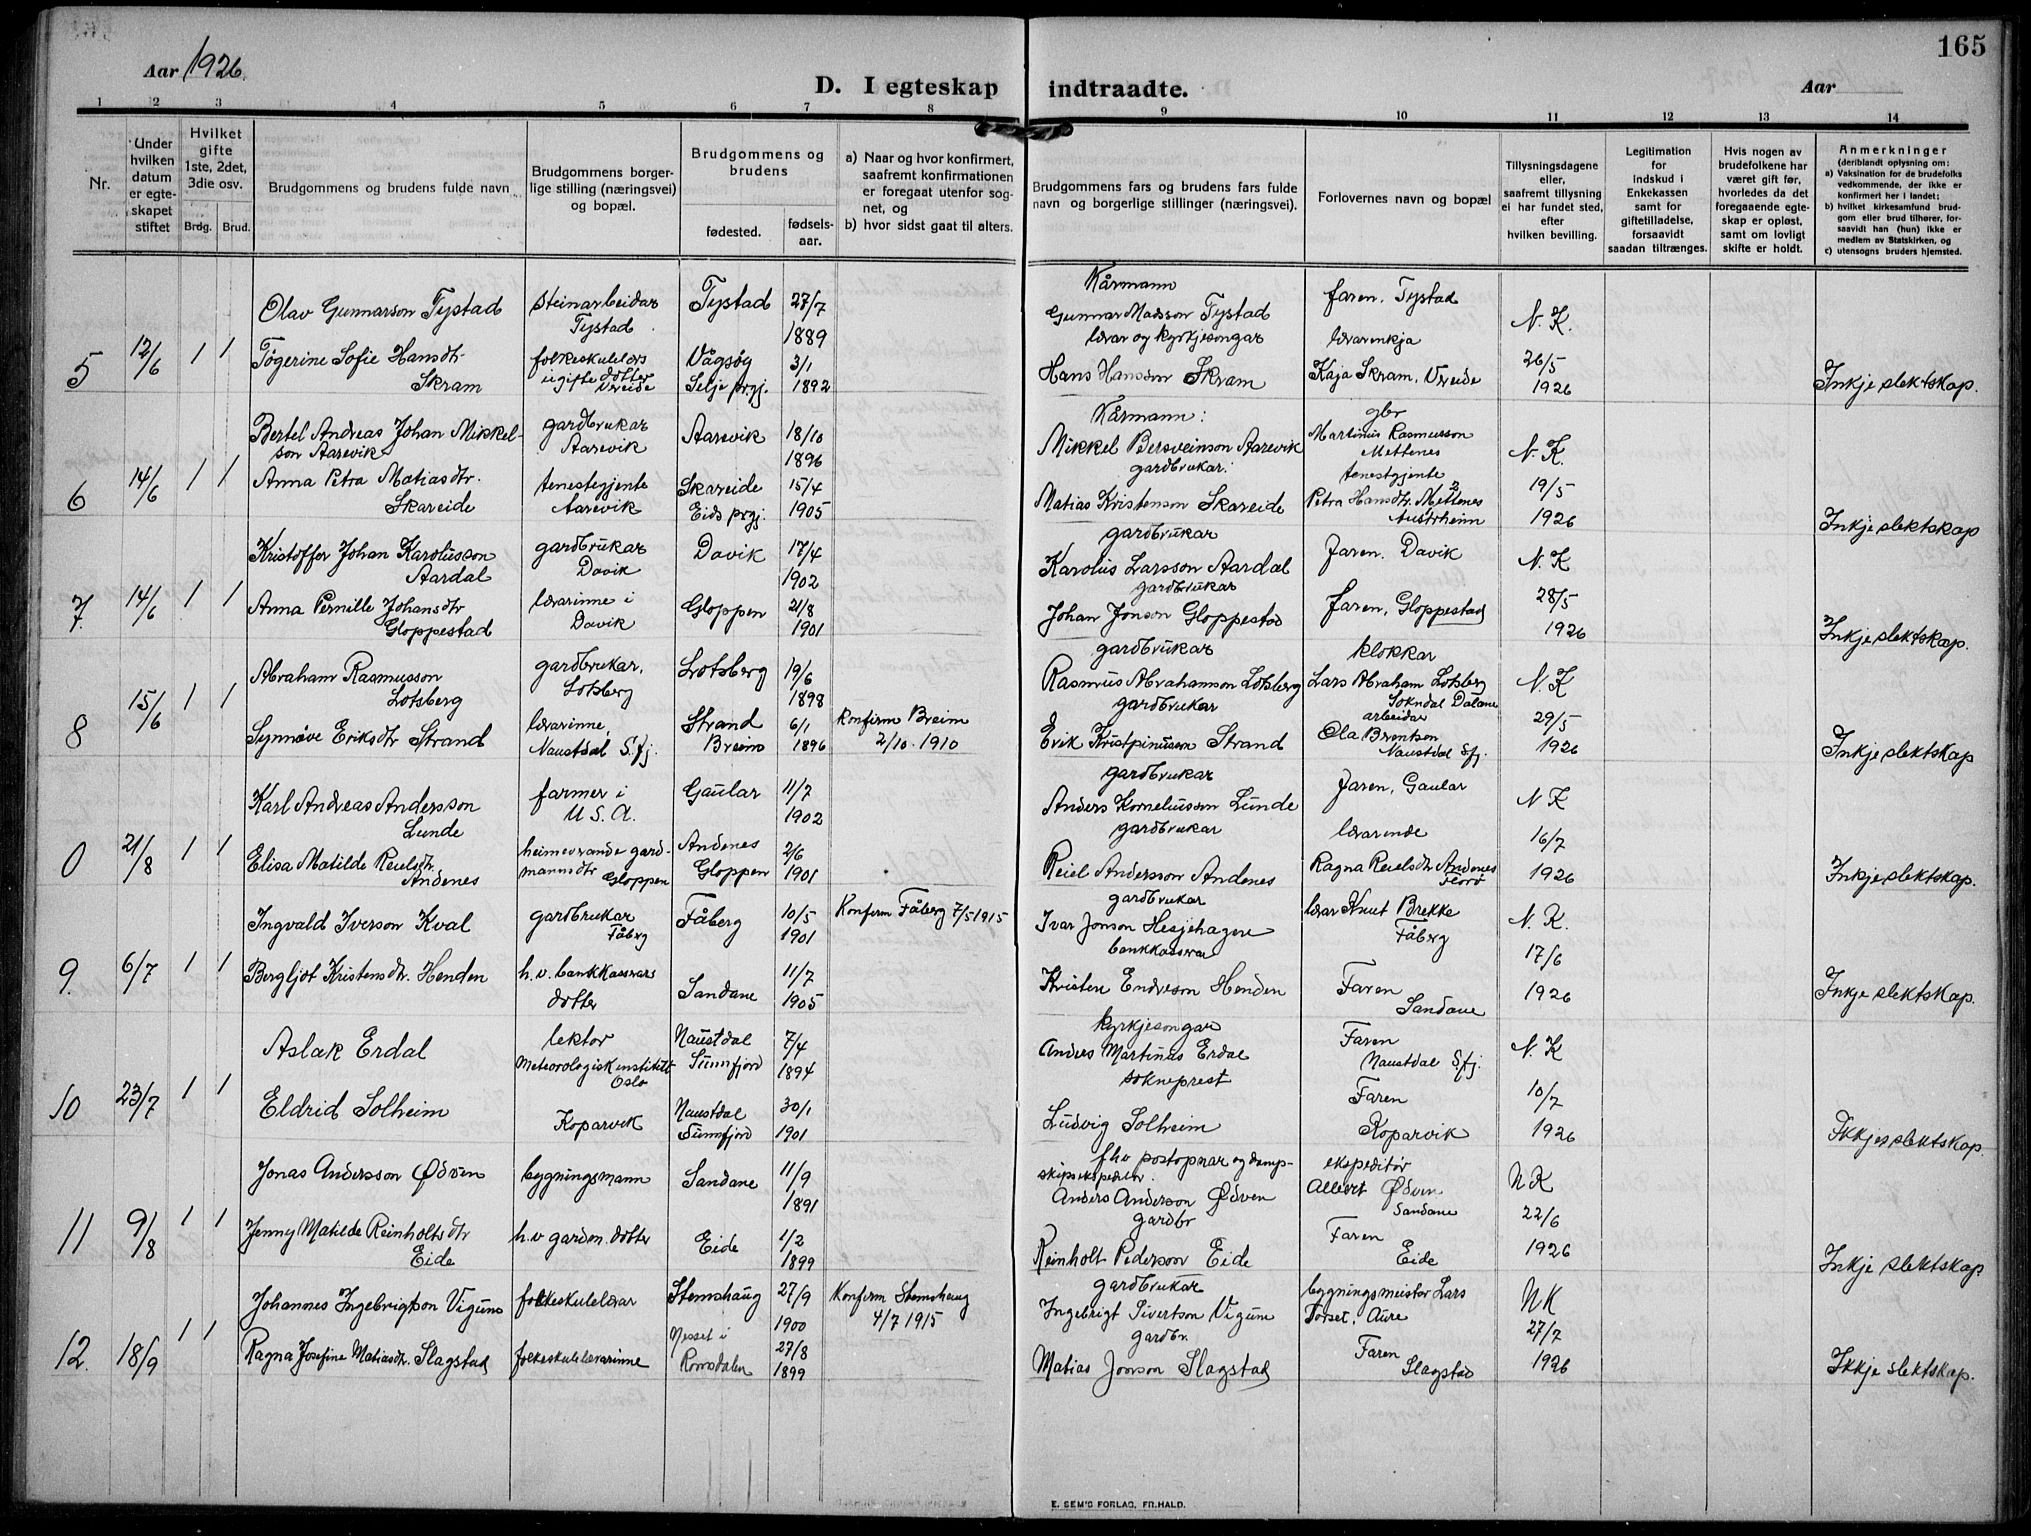 165
Aar 1926.
D. I egteskap indtraadte.
Aar
1 2 3 4 5 6 7 8 9 10 11 12 13 14
Nr.
Under hvilken datum er egteskapet stiftet
Hvilket gifte 1ste, 2det, 3die osv.
Brdg. Brud.
Brudgommens og brudens fulde navn
Brudgommens borgerlige stilling (næringsvei) og bopæl.
Brudgommens og brudens
fødested.
fødselsaar.
a) Naar og hvor konfirmert, saafremt konfirmationen er foregaat utenfor sognet, og
b) hvor sidst gaat til alters.
Brudgommens fars og brudens fars fulde navn og borgerlige stillinger (næringsvei).
Forlovernes navn og bopæl
Tillysningsdagene eller, saafremt tillysning ei har fundet sted, efter hvilken bevilling.
Legitimation for indskud i Enkekassen samt for giftetilladelse, forsaavidt saadan tiltrænges.
Hvis nogen av brudefolkene har været gift før, hvorledes da det foregaaende egteskap er opløst, samt om lovligt skifte er holdt.
Anmerkninger
(deriblandt oplysning om:
a) Vaksination for de brudefolks vedkommende, der ikke er konfirmert her i landet;
b) hvilket kirkesamfund brudgom eller brud tilhører, forsaavidt han (hun) ikke er medlem av Statskirken, og
c) utensogns bruders hjemsted.
5 12/6 1 1
Olav Gunnarson Tystad
steinarbeidar Tystad
Tystad
27/7 1889
Kårmann
Gunnar Madsson Tystad
faren, Tystad
N. K.
Tøgerine Sofie Hansdtr Skram
folkeskulelærs ugifte dotter Vereide
Vågsøy Selje prgj.
3/1 1892
lærar og kyrkjesongar
Hans Hansson Skram
lærarenkja
Kaja Skram, Vreide
26/5 1926
Inkje slektskap.
6 14/6 1 1
Bertel Andreas Johan Mikkelson Aarevik
gardbrukar Aarevik
Aarevik
18/10 1896
Kårmann:
Mikkel Bersveinson Aarevik
gbr Martinus Rasmusson Mettenes
N. K.
Anna Petra Matiasdtr. Skareide
tenestegjente Aarevik
Skareide Eids prgj.
15/4 1905
gardbrukar:
Matias Kristenson Skareide
tenestgjente
Petra Hansdtr. Mettenes Austrheim
19/5 1926
Inkje slektskap
7. 14/6 1 1
Kristoffer Johan Karolusson Aardal
gardbrukar Davik
Davik
17/4 1902
gardbrukar
Karolus Larsson Aardal
Faren. Davik
N. K
Anna Pernille Johansdtr Gloppestad
lærarinne i Davik
Gloppen
21/8 1901
gardbrukar
Johan Jonson Gloppestad
faren, Gloppestad
28/5 1926
Inkje slektskap.
8 15/6 1 1
Abraham Rasmusson Lotsberg
gardbrukar, Lotsberg
Lotsberg
19/6 1898
gardbrukar
Rasmus Abrahamson Lotsberg
klokkar
Lars Abraham Lotsberg Sokndal Dalane
N. K
Synnøve Eriksdtr Strand
lærarinne, Naustdal S. fj.
Strand Breim
6/1 1896
Konfirm Breim 2/10. 1910
gardbrukar
Erik Kristpinusson Strand
arbeidar
Ola Berentsen Naustdal Sfj.
29/5 1926
Inkje slektskap
0 21/8 1 1
Karl Andreas Andersson Lunde
farmer i U. S. A.
Gaular
11/7 1902
gardbrukar
Anders Korneliusson Lunde
Faren, Gaular
N K
Elisa Matilde Reielsdtr. Andenes
heimeverande gardmannsdtr Gloppen
Andenes Gloppen
2/6 1901
gardbrukar
Reiel Andersson Andenes
lærarinde
Ragna Reielsdtr Andenes Florø
16/7 1926
Inkje slektskap.
9. 6/7 1 1
Ingvald Iverson Kval
gardbrukar Fåberg
Fåberg
10/5 1901
Konfirm Fåberg 7/5 1915
gardbrukar
Ivar Jonson Hesjehagen
lærar Knut Brekke Fåberg
N. K.
Bergljot Kristensdtr. Henden
h. v. bankkasserars dotter
Sandane
11/7 1905
bankkasserar
Kristen Endreson Henden
Faren Sandane
17/6 1926
Inkje slektskap.
10 23/7 1 1
Aslak Erdal
lektor Meteorologisk institutt Oslo
Naustdal Sunnfjord
7/4 1894
kyrkjesongar
Anders Martinus Erdal
Faren Naustdal Sfj.
N. K
Eldrid Solheim
Koparvik
Naustdal Sunnfjord
30/1 1901
sokneprest
Ludvig Solheim
Faren Koparvik
10/7 1926
Ikkje slektskap.
11 9/8 1 1
Jonas Andersson Ødven
bygningsmann
Sandane
11/9 1891
fhv postopnar og dampskipsekspeditør.
Anders Anderson Ødven
ekspeditør Albert Ødven Sandane
N K
Jenny Matilde Reinholtsdtr Eide
h. v gardm. dotter
Eide
1/2 1899
gardbr
Reinholt Pederson Eide
Faren Eide
22/6 1926
Inkje slektskap
12. 18/9 1 1
Johannes Ingebrigtson Vigum
folkeskulelærar
Stemshaug
27/9 1900
Konfirm Stemshaug 4/7 1915
gardbrukar
Ingebrigt Sivertson Vigum
bygningsmeister Lars Torset, Aure
N K
Ragna Josefine Matiasdtr. Slagstad
folkeskulelærarinne
Nesset i Romsdalen
27/8 1899
gardbr.
Matias Jonson Slagstad
Faren Slagstad
27/7 1926
Ikkje slektskap.
E. SEM'S FORLAG, FR.HALD.